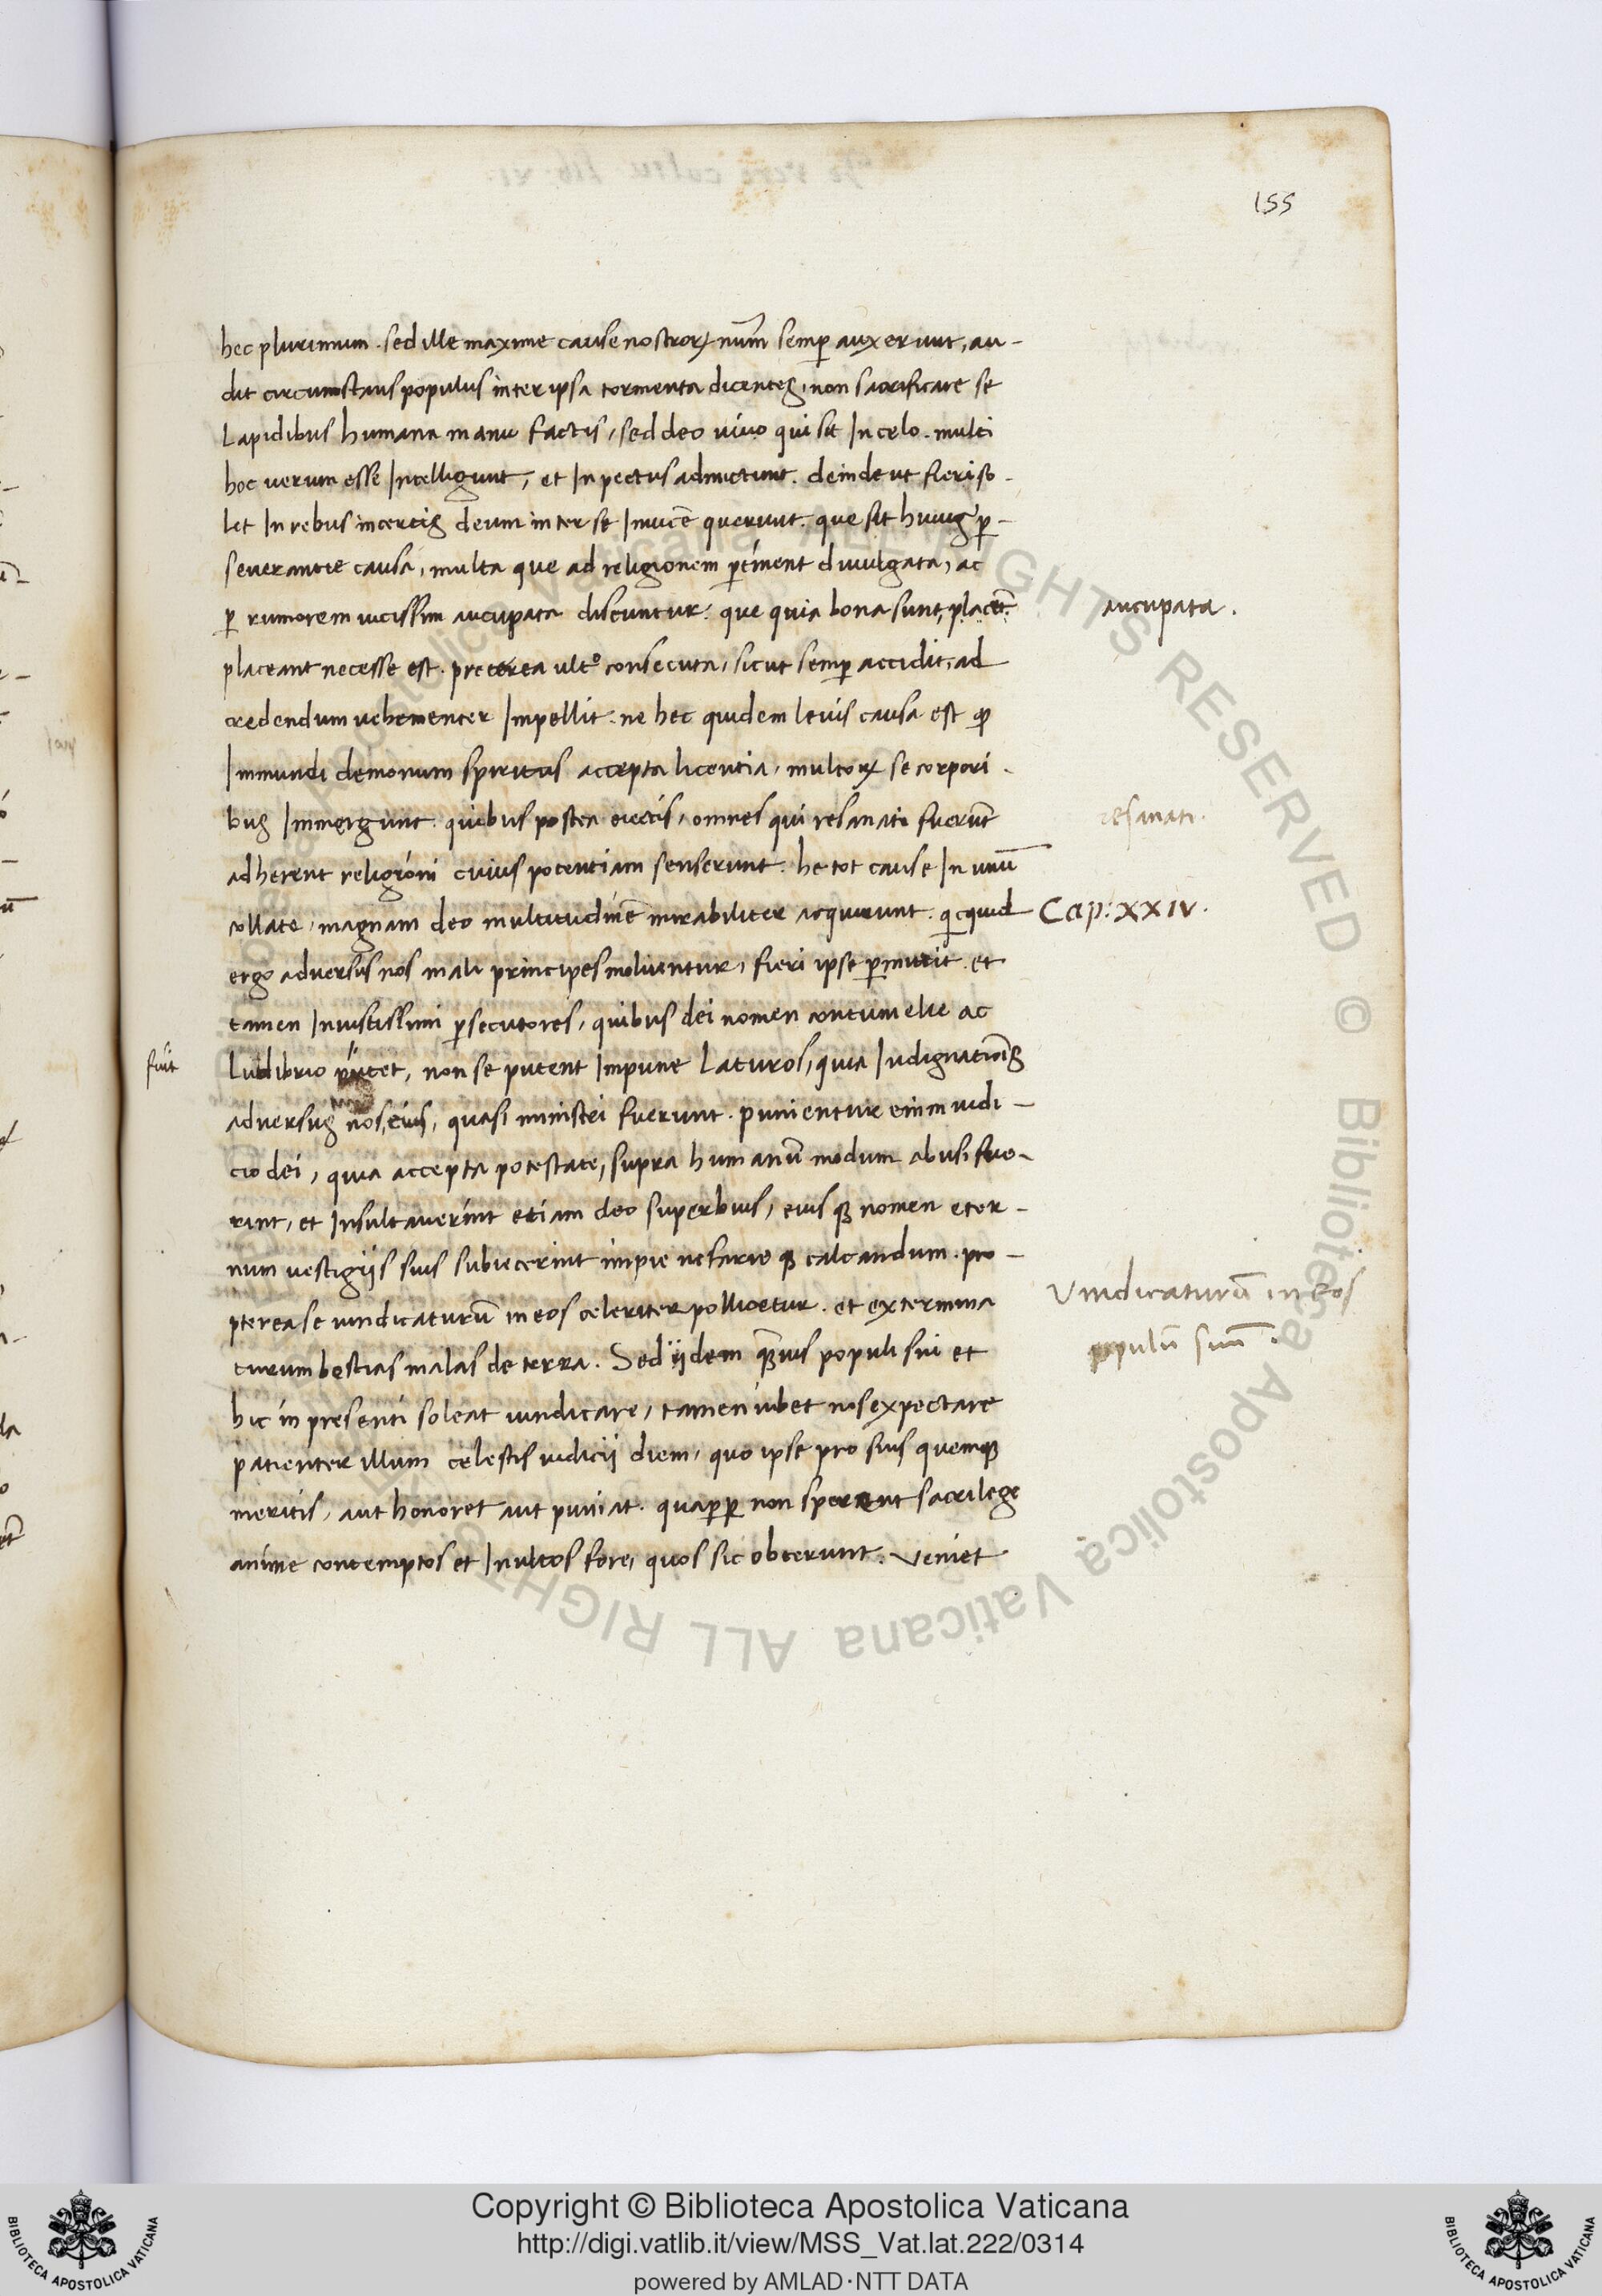 155
hec plurimum. sed ille maxime cause nostroꝝ num̅ semꝑ auxerunt, au-
dit circumstans populus inter ipsa tormenta dicentes, non sacrificare se
Lapidibus humana manu factis, sed deo uiuo qui sit In celo. multi
hoc uerum esse Intelligunt, et In pectus admictunt. deinde ut fieri so-
let In rebus incertis deum inter se Inuice̅ querunt. que sit huius ꝑ-
seuerantie causa, multa que ad religionem ꝑtinent diuulgata, ac
ꝑ rumorem uicissim aucupata discuntur. que quia bona sunt, placet̅.
aucupata.
placeant necesse est. preterea ultº consecuta, sicut semꝑ accidit, ad
credendum uehementer Impellit. ne hec quidem leuis causa est ꝙ
Immundi demonum spiritus accepta licentia, multoꝝ se corpori-
bus Immergunt. quibus postea eiectis, omnes qui resanati fuerunt̅
resanati.
adherent religioni cuius potentiam senserunt. he tot cause In unu̅
collate, magnam deo multitudine̅ mirabiliter acquirunt. quicquid
Cap: XXIV.
ergo aduersus nos mali principes moliuntur, fieri ipse ꝑmittit. et
tamen Iniustissimi ꝑsecutores, quibus dei nomen contumelie ac
fuit
Ludibrio putet, non se putent Impune Laturos, quia Indignationis
aduersus nos, eius, quasi ministri fuerunt. punientur enim iudi-
cio dei, quia accepta potestate, supra humanu̅ modum abusi fue-
rint, et Insultauerint etiam deo superbius, eiusꝙ nomen eter-
num uestigiis suis subiecerint impie nefarieꝙ calcandum. pro-
pterea se uindicaturu̅ in eos celeriter pollicetur. et extermina
Vindicaturu̅ in Eos
turum bestias malas de terra. Sed iidem qua̅uis populi sui et
populu̅ suu̅.
hic in presenti soleat uindicare, tamen iubet nos expectare
patienter illum celestis iudicii diem, quo ipse pro suis quemꝙ
meritis, aut honoret aut puniat. quaꝓꝑ non sperent sacrilege
anime contemptos et Inultos fore, quos sic obterunt. Veniet
Copyright © Biblioteca Apostolica Vaticana
http://digi.vatlib.it/view/MSS_Vat.lat.222/0314
powered by AMLAD·NTT DATA